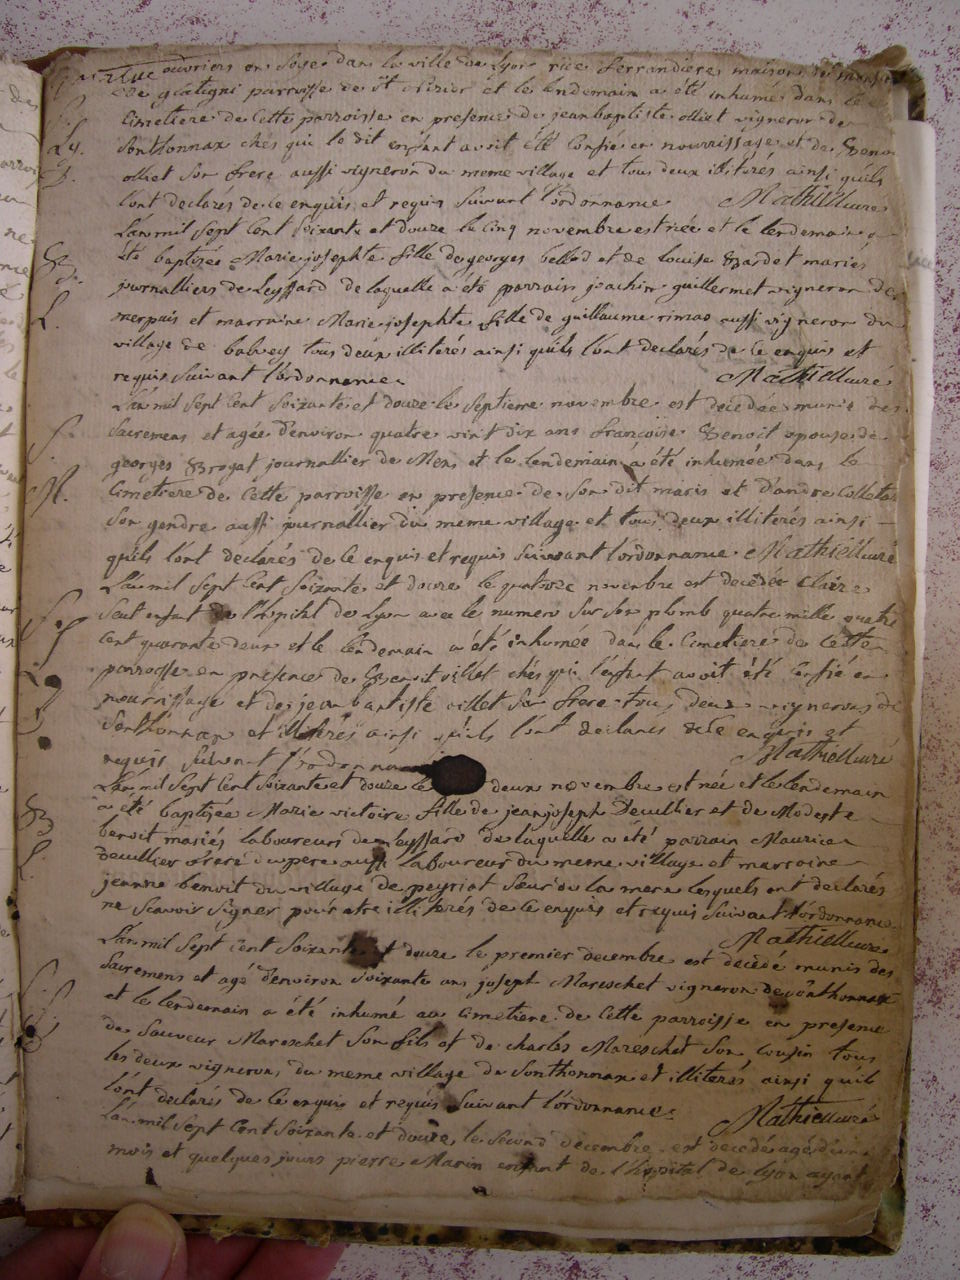 ouvriers en soye dans la ville de Lyon rüe ferrandieres maison de
de glatigni parroisse de st nizier et le lendemain a été inhumé dans le
cimetiere de cette parroisse en presence de jean baptiste olliet vigneron de
Ly. sonthonnax chés qui le dit enfant avoit été confié en nourrissage et de Benoit
olliet son frere aussi vigneron du meme village et tous deux illiterés ainsi quils
l'ont declarés de ce enquis et requis suivant l'ordonnance Mathieu curé
L'an mil sept cent soixante et douze le cinq novembre est née et le lendemain a
été baptisée Marie josephte fille de georges bellod et de louise Bardet mariés
journalliers de Leyssard de laquelle a été parrain joachin guillermet vigneron de
L. merpuis et marraine Marie josephte fille de guillaume rimao aussi vigneron du
village de balvey tous deux illiterés ainsi quils l'ont declarés de ce enquis et
requis suivant l'ordonnance Mathieu curé
L'an mil sept cent soixante et douze le septieme novembre est decedée munie des
S. sacremens et agée d'environ quatre vint dix ans françoise Benoit epouse de
georges Brogat journallier de Mens et le lendemain a été inhumée dans le
M. cimetiere de cette parroisse en presence de son dit maris et d'andré Colletaz
son gendre aussi journallier du meme village et tous deux illiterés ainsi
quils l'ont declarés de ce enquis et requis suivant l'ordonnance Mathieu curé
L'an mil sept cent soixante et douze le quatorze novembre est decedée Claire
S. enfant de l'hopital de Lyon avec le numero sur son plomb quatre mille quatre
cent quarante deux et le lendemain a été inhumée dans le cimetiere de cette
parroisse en presence de Benoit villet chés qui l'enfant avoit été confié en
nourrissage et de jean baptiste villet son frere tous deux vignerons de
sonthonnax et illiterés ainsi quils l'ont declarés de ce enquis et
requis suivant l'ordonna Mathieu curé
L'an mil sept cent soixante et douze le deux novembre est née et le lendemain
B a été baptisée Marie victoire fille de jean joseph Decullier et de Modeste
benoit mariés laboureurs de Leyssard de laquelle a été parrain Maurice
L. Decullier frere du pere aussi laboureur du meme village et marraine
jeanne benoit du village de peyriat sœur de la mere lesquels ont declarés
ne scavoir signer pour etre illiterés de ce enquis et requis suivant l'ordonnance
Mathieu curé
L'an mil sept cent soixante et douze le premier decembre est decedé munis des
S. sacremens et agé d'environ soixante ans joseph Mareschet vigneron de sonthonnax
S. et le lendemain a été inhumé au cimetiere de cette parroisse en presence
de sauveur Mareschet son fils et de charles Mareschet son cousin tous
les deux vignerons du meme village de sonthonnax et illiterés ainsi quils
l'ont declarés de ce enquis et requis suivant l'ordonnance Mathieu curé
L'an mil sept cent soixante et douze le second decembre est decedé agé d'un
mois et quelques jours pierre Marin enfant de l'hopital de Lyon ayant